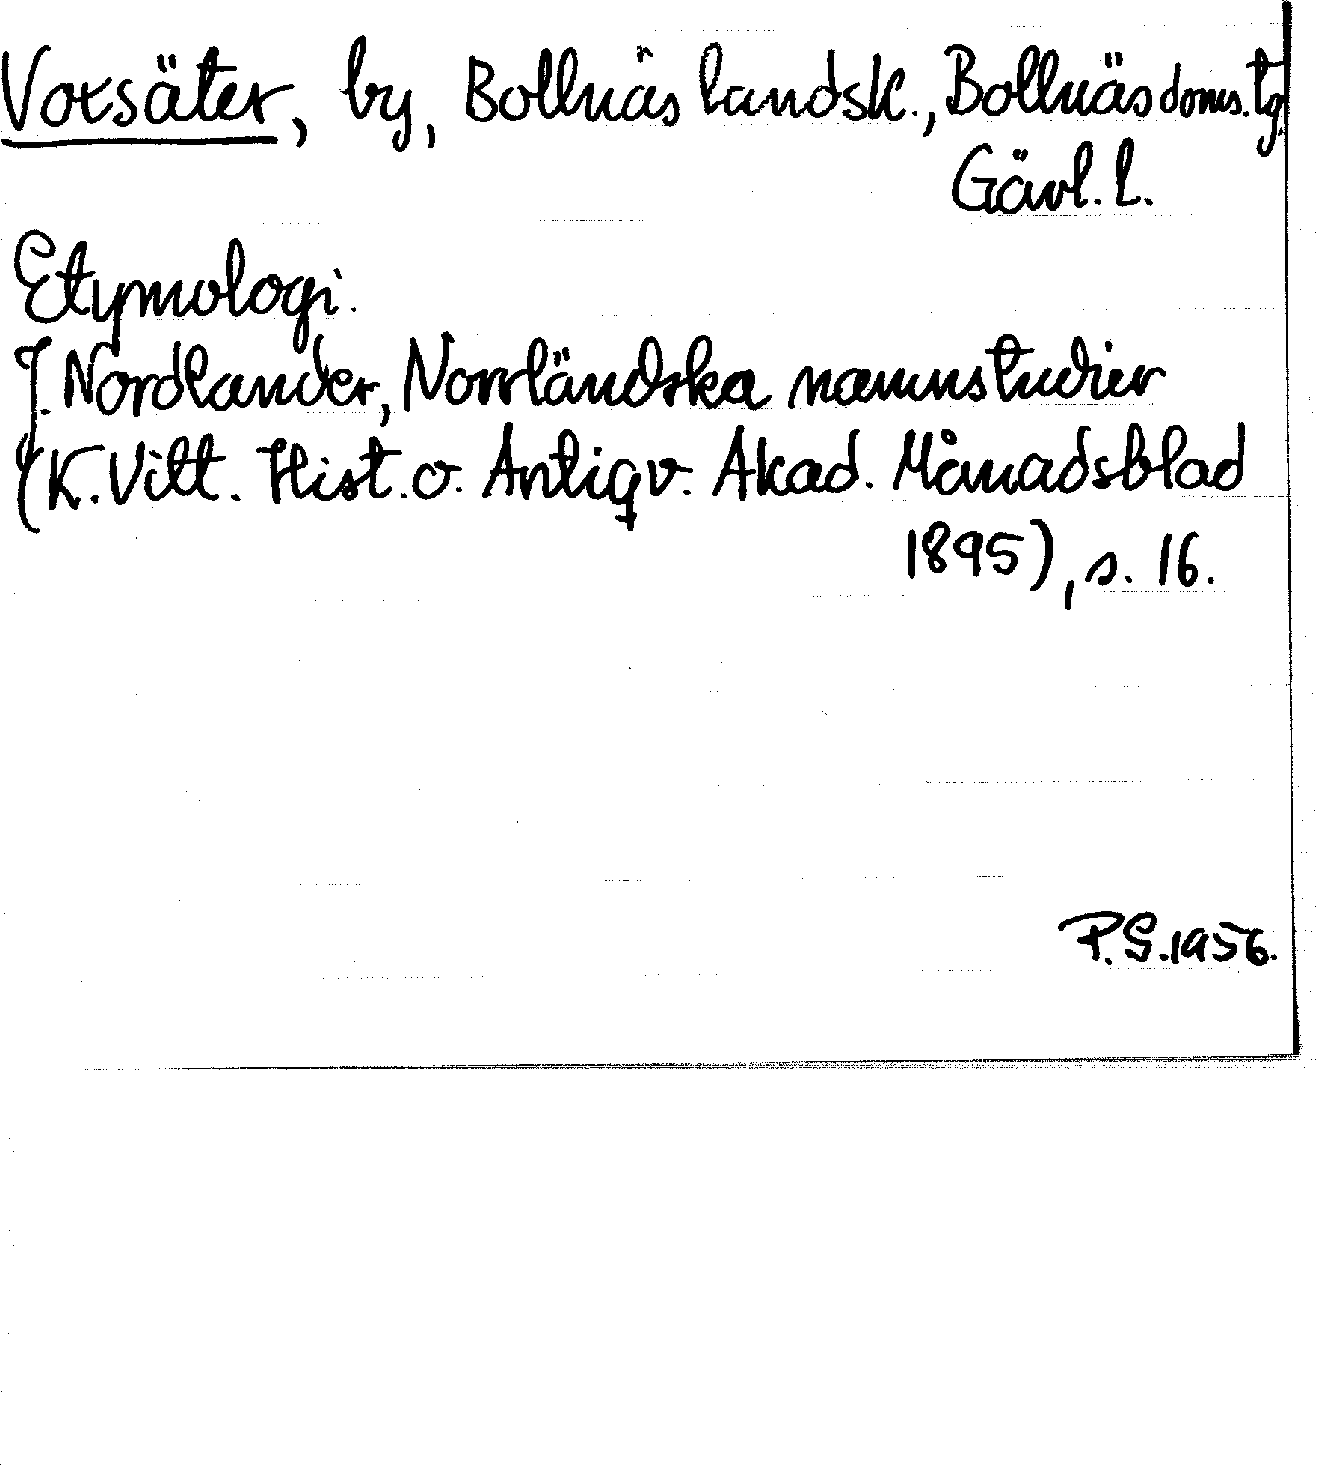 Voxsäter, by, Bollnäs landsk., Bollnäs doms. tg.
Gävl. l.
Etymologi.
J. Nordlander, Norrländska namnstudier
(K. Vitt. Hist. o. Antiqv. Akad. Månadsblad
1895), s. 16.
P.S. 1956.